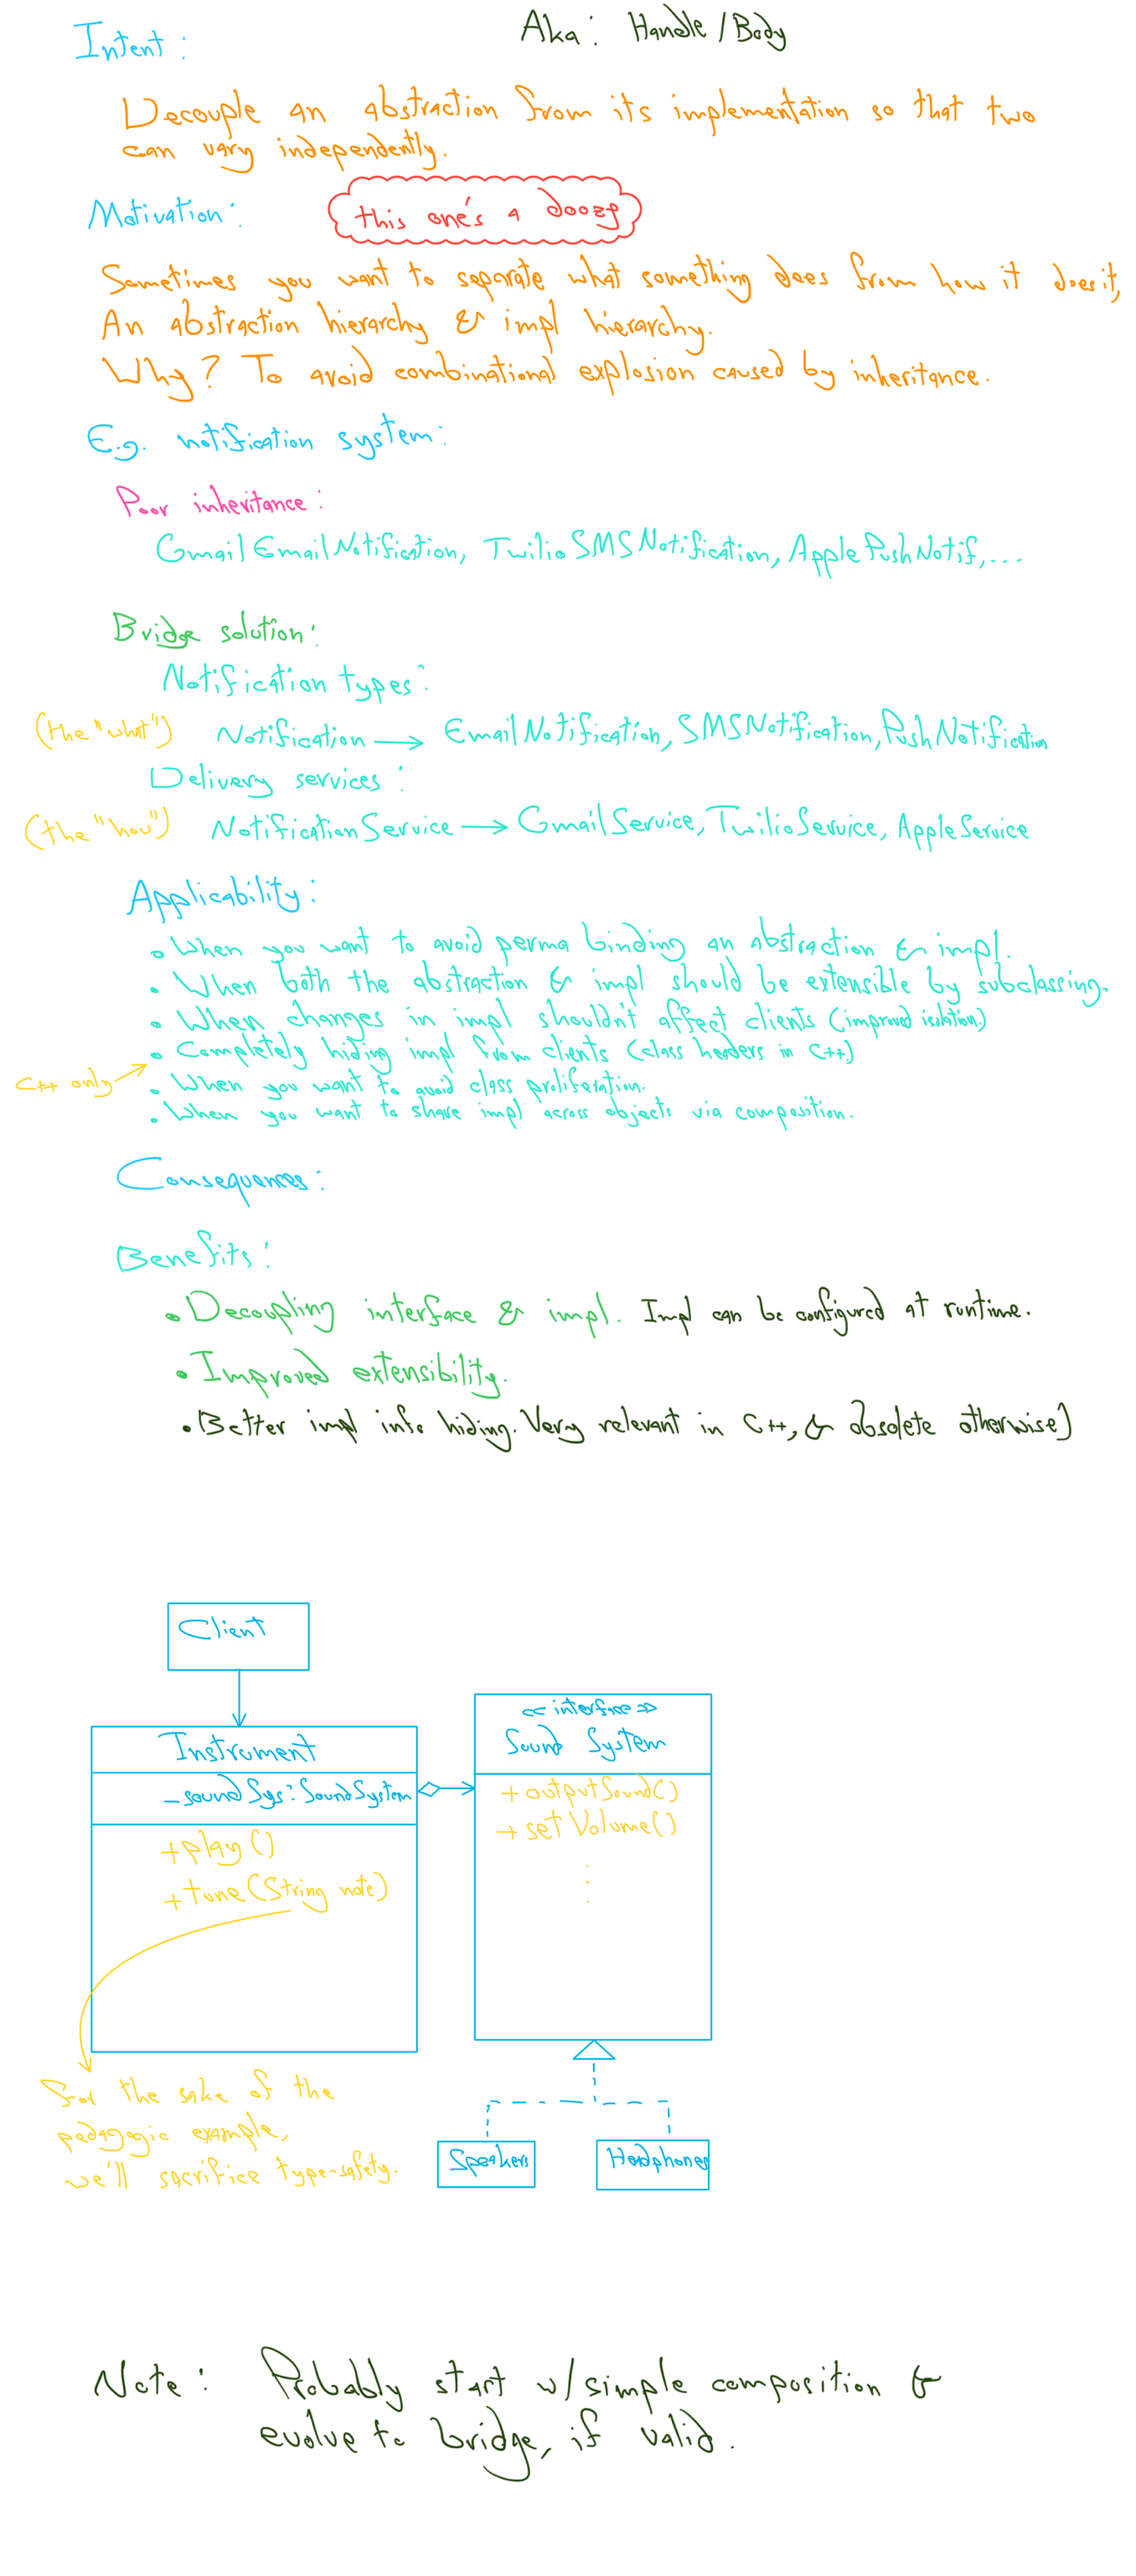 Aka: Handle/Body
Intent:
Decouple an abstraction from its implementation so that two
can vary independently.
Motivation:
this one's a doozy
Sometimes you want to separate what something does from how it does it,
An abstraction hierarchy & impl hierarchy.
Why? To avoid combinational explosion caused by inheritance.
E.g. notification system:
Poor inheritance:
GmailEmailNotification, TwilioSMSNotification, ApplePushNotif,...
Bridge solution:
Notification types:
(the "what")
Notification → EmailNotification, SMSNotification, PushNotification
Delivery services:
(the "how")
NotificationService → GmailService, TwilioService, AppleService
Applicability:
• When you want to avoid perma binding an abstraction & impl.
• When both the abstraction & impl should be extensible by subclassing.
• When changes in impl shouldn't affect clients (improved isolation)
• Completely hiding impl from clients (class headers in C++)
C++ only →
• When you want to avoid class proliferation.
• When you want to share impl across objects via composition.
Consequences:
Benefits:
• Decoupling interface & impl. Impl can be configured at runtime.
• Improved extensibility.
• Better impl info hiding. Very relevant in C++, & obsolete otherwise)
Client
Instrument
- soundSys: SoundSystem
+ play()
+ tune(String note)
<< interface >>
Sound System
+ outputSound()
+ setVolume()
For the sake of the
pedagogic example,
we'll sacrifice type-safety.
Speakers
Headphones
Note: Probably start w/ simple composition &
evolve to bridge, if valid.